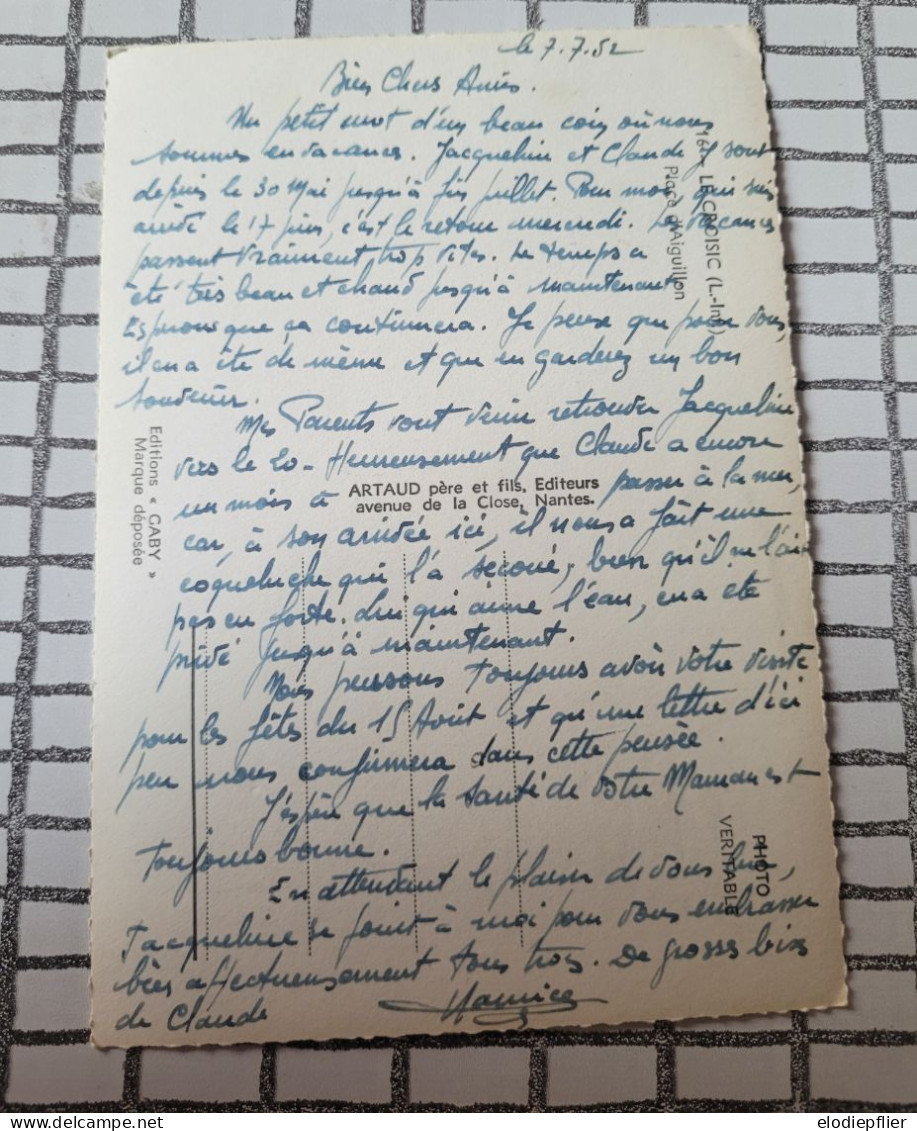 le 7.7.52
Bien Chers Amis.
Un petit mot d'un beau coin où nous
sommes en vacances. Jacqueline et Claude y sont
depuis le 30 Mai jusqu'à fin juillet. Pour moi, qui suis
arrivé le 17 juin, c'est le retour mercredi. Les vacances
passent vraiment trop vites. Le temps a
été très beau et chaud jusqu'à maintenant.
Espérons que ça continuera. Je pense que pour vous,
il en a été de même et que en garderez un bon
souvenir.
Mes Parents vont venir retrouver Jacqueline
vers le 20 - Heureusement que Claude a encore
un mois à passer à la mer,
car, à son arrivée ici, il nous a fait une
coqueluche qui l'a secoué, bien qu'il ne l'ait
pas eu forte. Lui qui aime l'eau, en a été
privé jusqu'à maintenant.
Nous pensons toujours avoir votre visite
pour les fêtes du 15 Août et qu'une lettre d'ici
peu nous confirmera dans cette pensée.
J'espère que la santé de votre Maman est
toujours bonne.
En attendant le plaisir de vous lire,
Jacqueline se joint à moi pour vous embrasser
bien affectueusement tous trois. De grosses bises
de Claude
Maurice
LE CROISIC (L.-Inf.)
Place d'Aiguillon
Editions « GABY »
Marque déposée
ARTAUD père et fils, Editeurs
avenue de la Close, Nantes.
PHOTO
VERITABLE
delcampe.net
elodiepflier